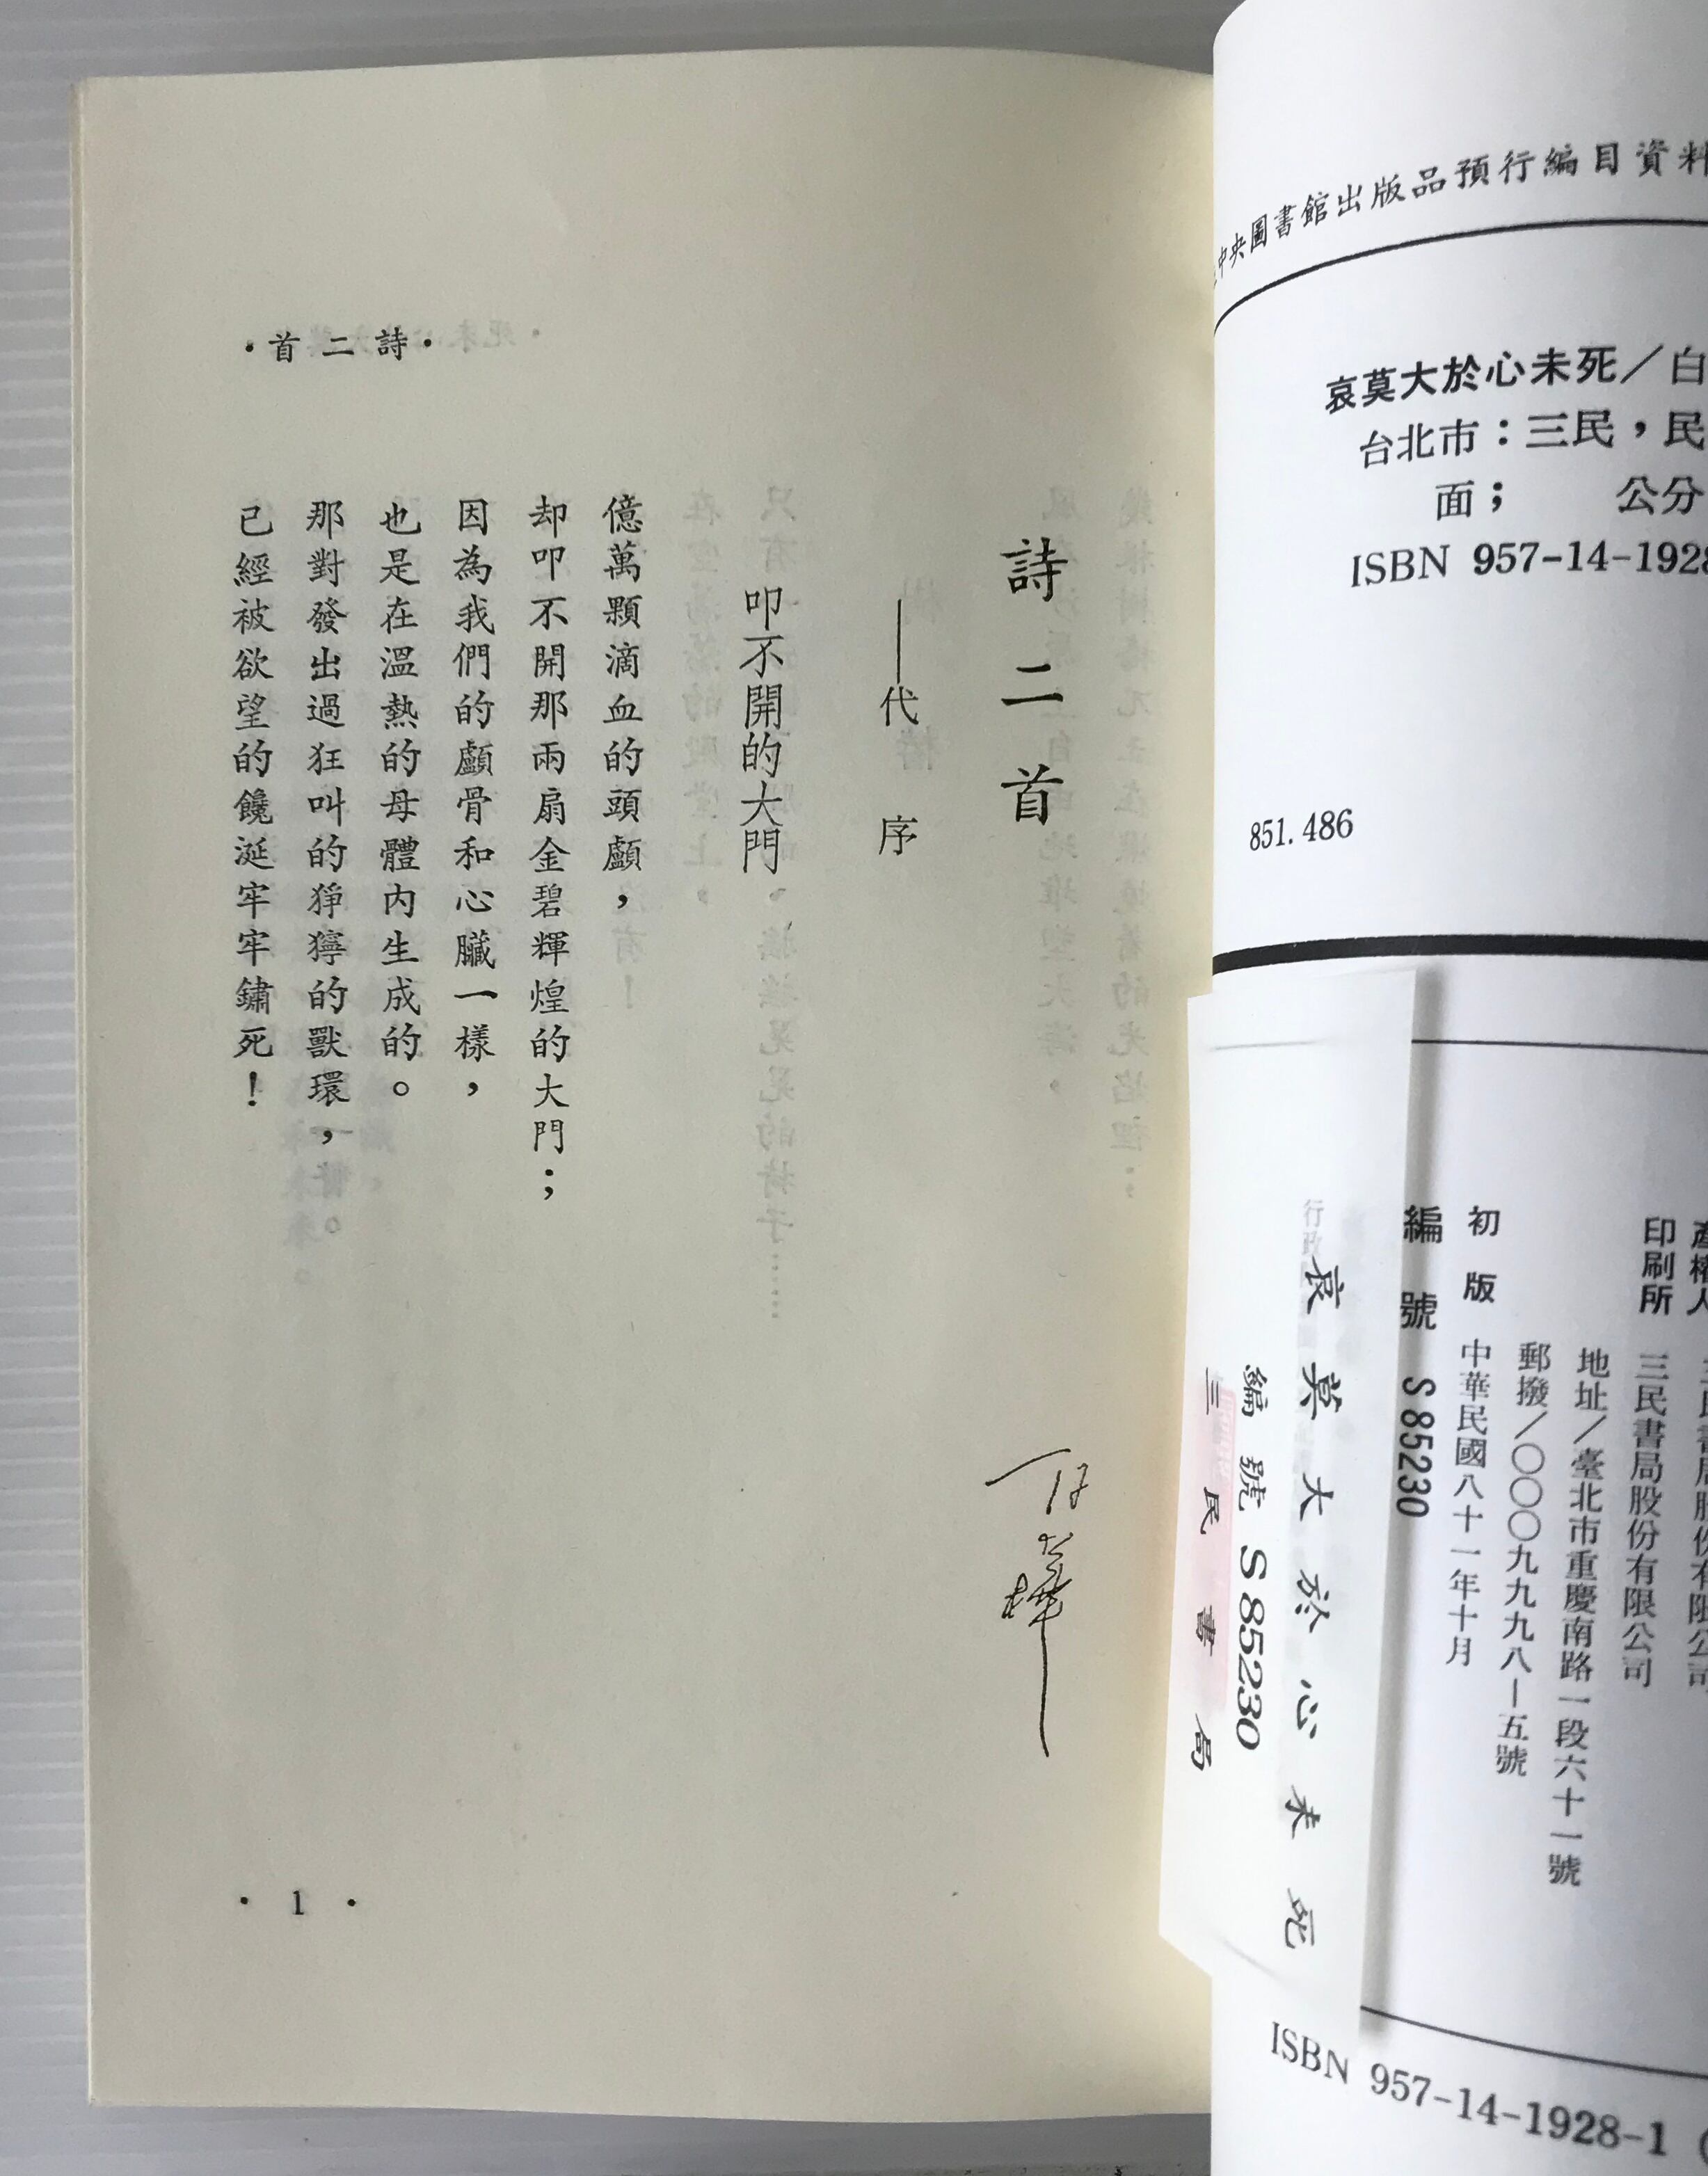 中央圖書館出版品預行編目資料
哀莫大於心未死／白
台北市：三民，民
面；　公分
ISBN 957-14-1928
851.486
印刷所　三民書局股份有限公司
地址／臺北市重慶南路一段六十一號
郵撥／〇〇〇九九九八－五號
初版　中華民國八十一年十月
編號　S 85230
哀莫大於心未死
編號　S 85230
三民書局
ISBN 957-14-1928-1
·詩二首·
詩二首
——代　序
叩不開的大門
億萬顆滴血的頭顱，
却叩不開那兩扇金碧輝煌的大門；
因為我們的顱骨和心臟一樣，
也是在溫熱的母體內生成的。
那對發出過狂叫的猙獰的獸環，
已經被欲望的饞涎牢牢鏽死！
· 1 ·